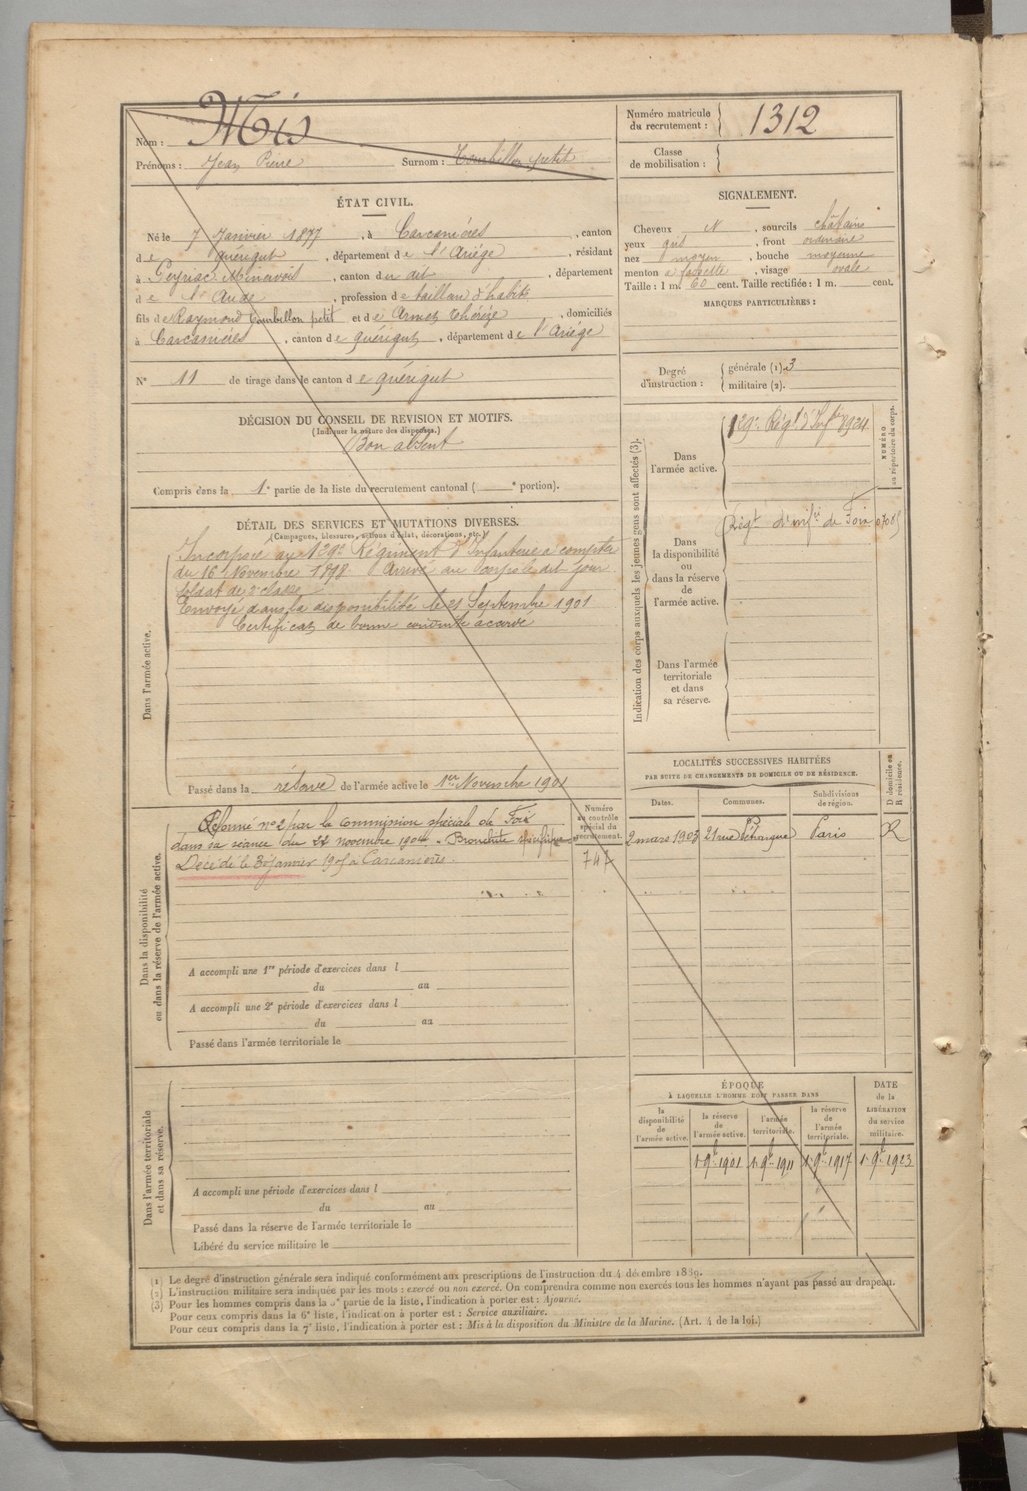 Nom : Mis
Prénoms : Jean Pierre Surnom : Tombillon petit
Numéro matricule du recrutement : 1312
Classe de mobilisation :
ÉTAT CIVIL.
Né le 7 Janvier 1877, à Carcanières, canton
de Quérigut, département de l'Ariège, résidant
à Peyriac Minervois, canton du dit, département
de l'Aude, profession de tailleur d'habits
fils de Raymond Tombillon petit et de Arnez Thérèze, domiciliés
à Carcanières, canton de Quérigut, département de l'Ariège
N° 11 de tirage dans le canton de Quérigut
SIGNALEMENT.
Cheveux N, sourcils châtains
yeux gris, front ordinaire
nez moyen, bouche moyenne
menton à fossette, visage ovale
Taille : 1 m. 60 cent. Taille rectifiée : 1 m. cent.
MARQUES PARTICULIÈRES :
Degré d'instruction : générale (1). 3
militaire (2).
DÉCISION DU CONSEIL DE REVISION ET MOTIFS.
(Indiquer la nature des dispenses.)
Bon absent
Compris dans la 1e partie de la liste du recrutement cantonal ( e portion).
DÉTAIL DES SERVICES ET MUTATIONS DIVERSES.
(Campagnes, blessures, actions d'éclat, décorations, etc.)
Dans l'armée active.
Incorporé au 129e Régiment d'Infanterie à compter
du 16 Novembre 1898. Arrivé au corps le dit jour
soldat de 2e classe
Envoyé dans la disponibilité le 21 Septembre 1901
Certificat de bonne conduite accordé
Passé dans la réserve de l'armée active le 1er Novembre 1901
Indication des corps auxquels les jeunes gens sont affectés (3).
NUMÉRO au répertoire du corps.
Dans l'armée active.
129e Régt d'Infie 8924
Dans la disponibilité ou dans la réserve de l'armée active.
Régt d'Infie de Foix
Dans l'armée territoriale et dans sa réserve.
Dans la disponibilité ou dans la réserve de l'armée active.
Numéro au contrôle spécial du recrutement.
Réformé n° 2 par la Commission spéciale de Foix
dans sa séance du 22 novembre 1904. Bronchite spécifique
Décédé le 30 janvier 1905 à Carcanières.
A accompli une 1re période d'exercices dans l
du au
A accompli une 2e période d'exercices dans l
du au
Passé dans l'armée territoriale le
LOCALITÉS SUCCESSIVES HABITÉES
PAR SUITE DE CHANGEMENTS DE DOMICILE OU DE RÉSIDENCE.
Dates. Communes. Subdivisions de région. D domicile ou R résidence.
2 mars 1903 21 rue Paris R
Dans l'armée territoriale et dans sa réserve.
A accompli une période d'exercices dans l
du au
Passé dans la réserve de l'armée territoriale le
Libéré du service militaire le
ÉPOQUE
À LAQUELLE L'HOMME DOIT PASSER DANS
la disponibilité de l'armée active.
la réserve de l'armée active.
l'armée territoriale.
la réserve de l'armée territoriale.
DATE de la LIBÉRATION du service militaire.
1. 9bre 1901 1. 9bre 1911 1. 9bre 1917 1. 9bre 1923
(1) Le degré d'instruction générale sera indiqué conformément aux prescriptions de l'instruction du 4 décembre 1889.
(2) L'instruction militaire sera indiquée par les mots : exercé ou non exercé. On comprendra comme non exercés tous les hommes n'ayant pas passé au drapeau.
(3) Pour les hommes compris dans la partie de la liste, l'indication à porter est : Ajourné.
Pour ceux compris dans la 6e liste, l'indication à porter est : Service auxiliaire.
Pour ceux compris dans la 7e liste, l'indication à porter est : Mis à la disposition du Ministre de la Marine. (Art. 4 de la loi.)